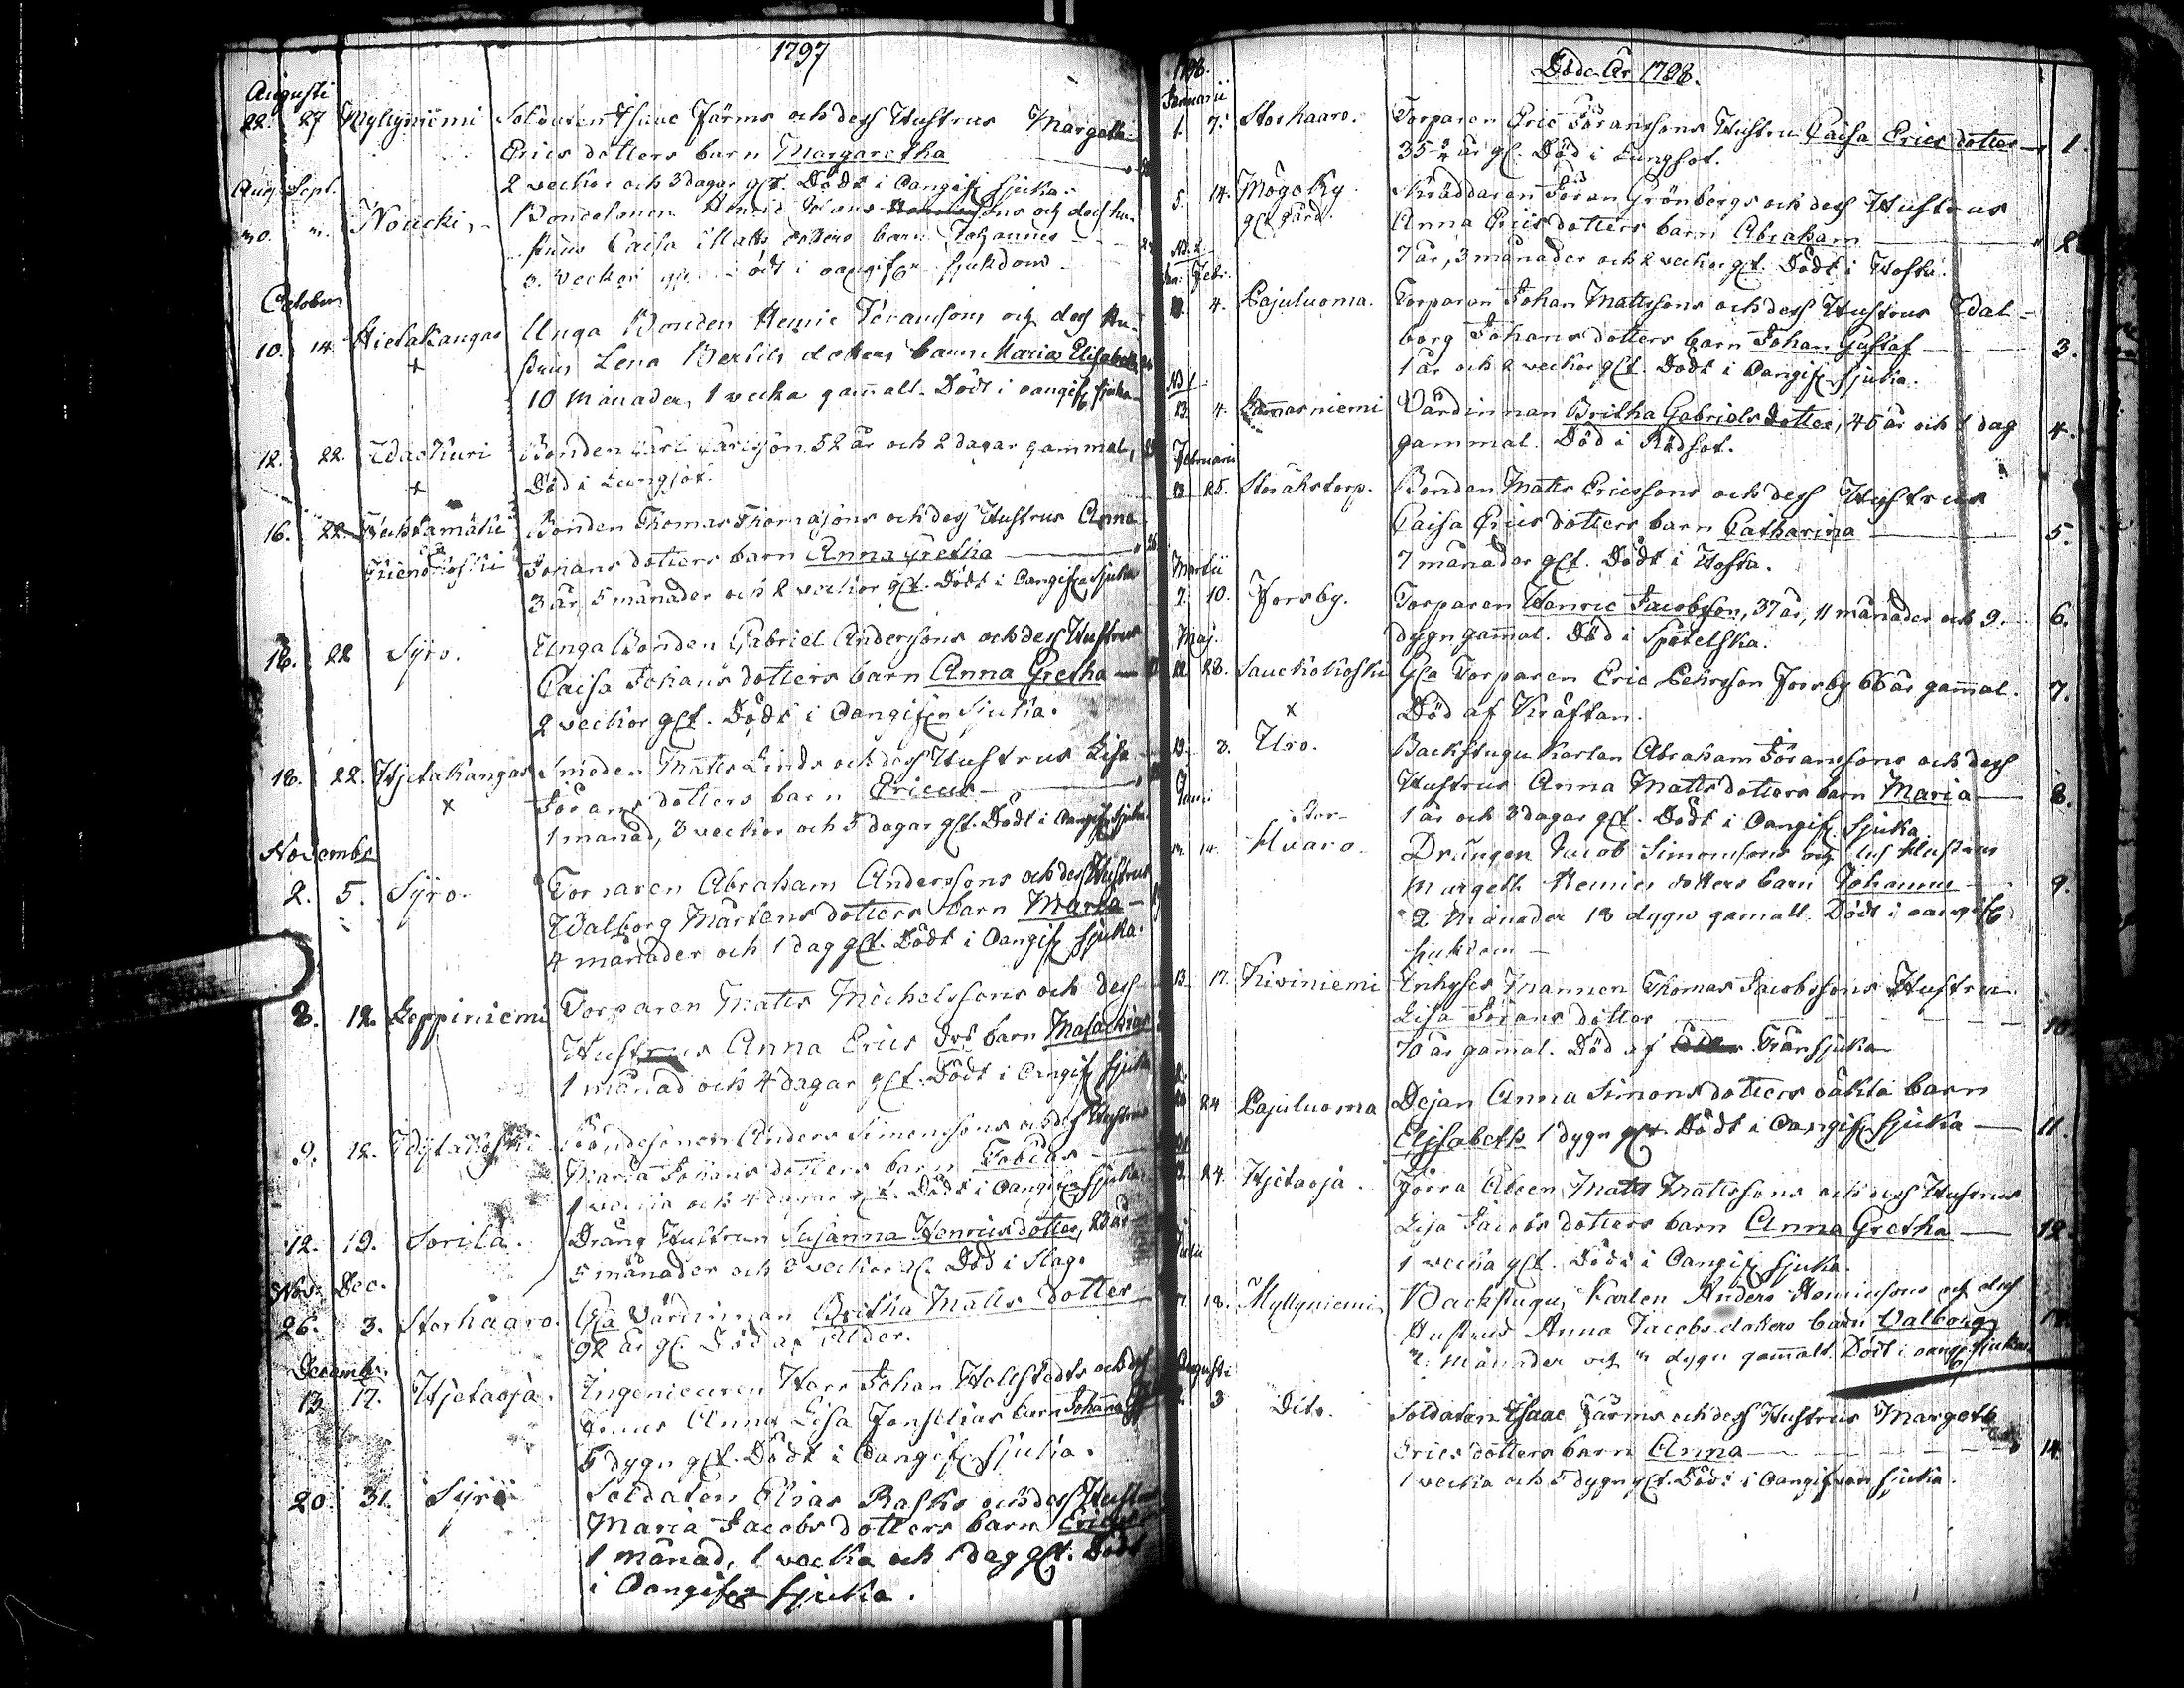 1797
Augusti
22. 27 Myllyniemi Soldaten Isaac Järms och dess Hustrus Margetha
Erics dotters barn Margaretha
2 veckor och 3 dagar glt. Dödt i Oangifn sjuka.
Aug. Sept.
Noucki, Bondesonen Henric Hans sons och dess hu-
strus Caisa Matts dotters barn Johannes
3. veckor glt. Dödt i oangifven sjukdom
October
10. 14. Hietakangas Unga Bonden Henric Jöransons och dess Hu-
x strus Lena Bertils dotters barn Maria Elisabeth
10 Månader, 1 vecka gamalt. Dödt i oangif sjuka
12. 22. Idackuri Bonden Carl Carlsson 52 år och 2 dagar gammal,
x Död i Lungsot.
16. 22. Bonden Thomas Thomassons och dess Hustrus Anna
Johans dotters barn Anna Gretha
3 år, 5 månader och 2 veckor glt. Dödt i Oangifn sjuka
16. 22 Syro. Unga Bonden Gabriel Anderssons och dess Hustrus
Caisa Johans dotters barn Anna Gretha
2 veckor glt. Dödt i Oangifn Sjuka.
18. 22. Hjetakangas Smeden Matts Linds och dess Hustrus Lisa
x Jörans dotters barn Ericus
1 månad, 3 veckor och 5 dagar glt. Dödt i Oangifn Sjuka
Novembr
2. 5. Syro. Torparen Abraham Anderssons och dess Hustrus
Walborg Mårtens dotters barn Maria
4 månader och 1 dag glt. Dödt i Oangifn sjuka.
8. 12. Leppiniemi Torparen Matts Michelssons och dess
Hustrus Anna Erics dot barn Malachias
1 månad och 4 dagar glt. Dödt i Oangifn sjuka
9. 12. Bondesonen Anders Simonssons och dess Hustrus
Maria Johans dotters barn Tobias
1 vecka och 4 dagar glt. Dödt i Oangifn sjuka.
12. 19. Sorila. Dräng Hustrun Susanna Henricsdotter, år
5 månader och 2 veckor gl. Död i Slag.
Nov. Dec.
26. 3. Storhaaro. Gla Värdinnan Britha Matts dotter
92 år gl. Död af ålder.
Decembr.
13. 17. Hjetaoja. Ingenieuren Herr Johan Hellstedts och dess
Fruus Anna Lisa Jonselias barn Johanna
5 dygn glt. Dödt i Oangifn sjuka.
20. 31. Syrö Soldaten Elias Rasks och dess Hustrus
Maria Jacobs dotters barn Ericus
1 månad, 1 vecka och 1 dag glt. Dödt
i Oangifn sjuka.
1798. Döde År 1798.
Januarii
1. 7. Storhaaro. Torparen Eric Jöranssons Hustru Caisa Erics dotter 1.
35 år gl. Död i Lungsot.
5. 14. Mögoky Skräddaren Jöran Grönbergs och dess Hustrus
gl gård. Anna Erics dotters barn Abraham 2
7 år, 3 månader och 2 veckor glt. Dödt i Hosta.
Febr.
4. Pajuluoma. Torparen Johan Mattssons och dess Hustrus Wal-
borg Johans dotters barn Johan Gustaf 3.
1 år och 2 veckor glt. Dödt i Oangifn sjuka.
4. Lammasniemi Värdinnan Britha Gabriels dotter, 45 år och 1 dag 4.
gammal. Död i Rödsot.
Februarii
25. Storåkstorp. Bonden Matts Ericssons och dess Hustrus
Caisa Erics dotters barn Catharina 5.
7 månader glt. Dödt i Hosta.
Martii
2. 10. Forsby. Torparen Henric Jacobsson, 37 år, 11 månader och 9. 6.
dygn gamal. Död i Spetelska.
Maj
22 28. Sauckokoski Gla Torparen Eric Pehrsson Forsby 66 år gamal. 7.
x Död af Kräftan.
19. 3. Uro. Backstugu Karlen Abraham Jöranssons och dess
Hustrus Anna Matts dotters barn Maria 8.
Junii 1 år och 3 dagar glt. Dödt i Oangifn sjuka.
Stor-
Hvaro. Drängen Jacob Simonsons och des Hustrus
Margeth Henrics dotters barn Johannes 9.
2 Månader 18 dygn gamalt. Dödt i oangifn
sjukdom
13. 17. Kiviniemi Inhyses Mannen Thomas Jacobssons Hustru
Lisa Jörans dotter 10.
70 år gamal. Död af Trånsjuka
24 Pajuluoma Dejan Anna Simons dotters oäkta barn
Elisabeth 1 dygn glt. Dödt i Oangifn sjuka 11.
24. Hjetaoja. Matts Mattssons och dess Hustrus
Lisa Jacobs dotters barn Anna Gretha 12.
1 vecka glt. Dödt i Oangifn sjuka.
Julii
18. Myllyniemi Backstugu Karlen Anders Henricsons och dess
Hustrus Anna Jacobs dotters barn Valborg
månader och dygn gamalt. Dödt i oangif sjuka
Augusti
3 Dito. Soldaten Isaac Järms och dess Hustrus Margeth
Erics dotters barn Anna 14.
1 vecka och 5 dygn glt. Dödt i Oangifven sjuka.